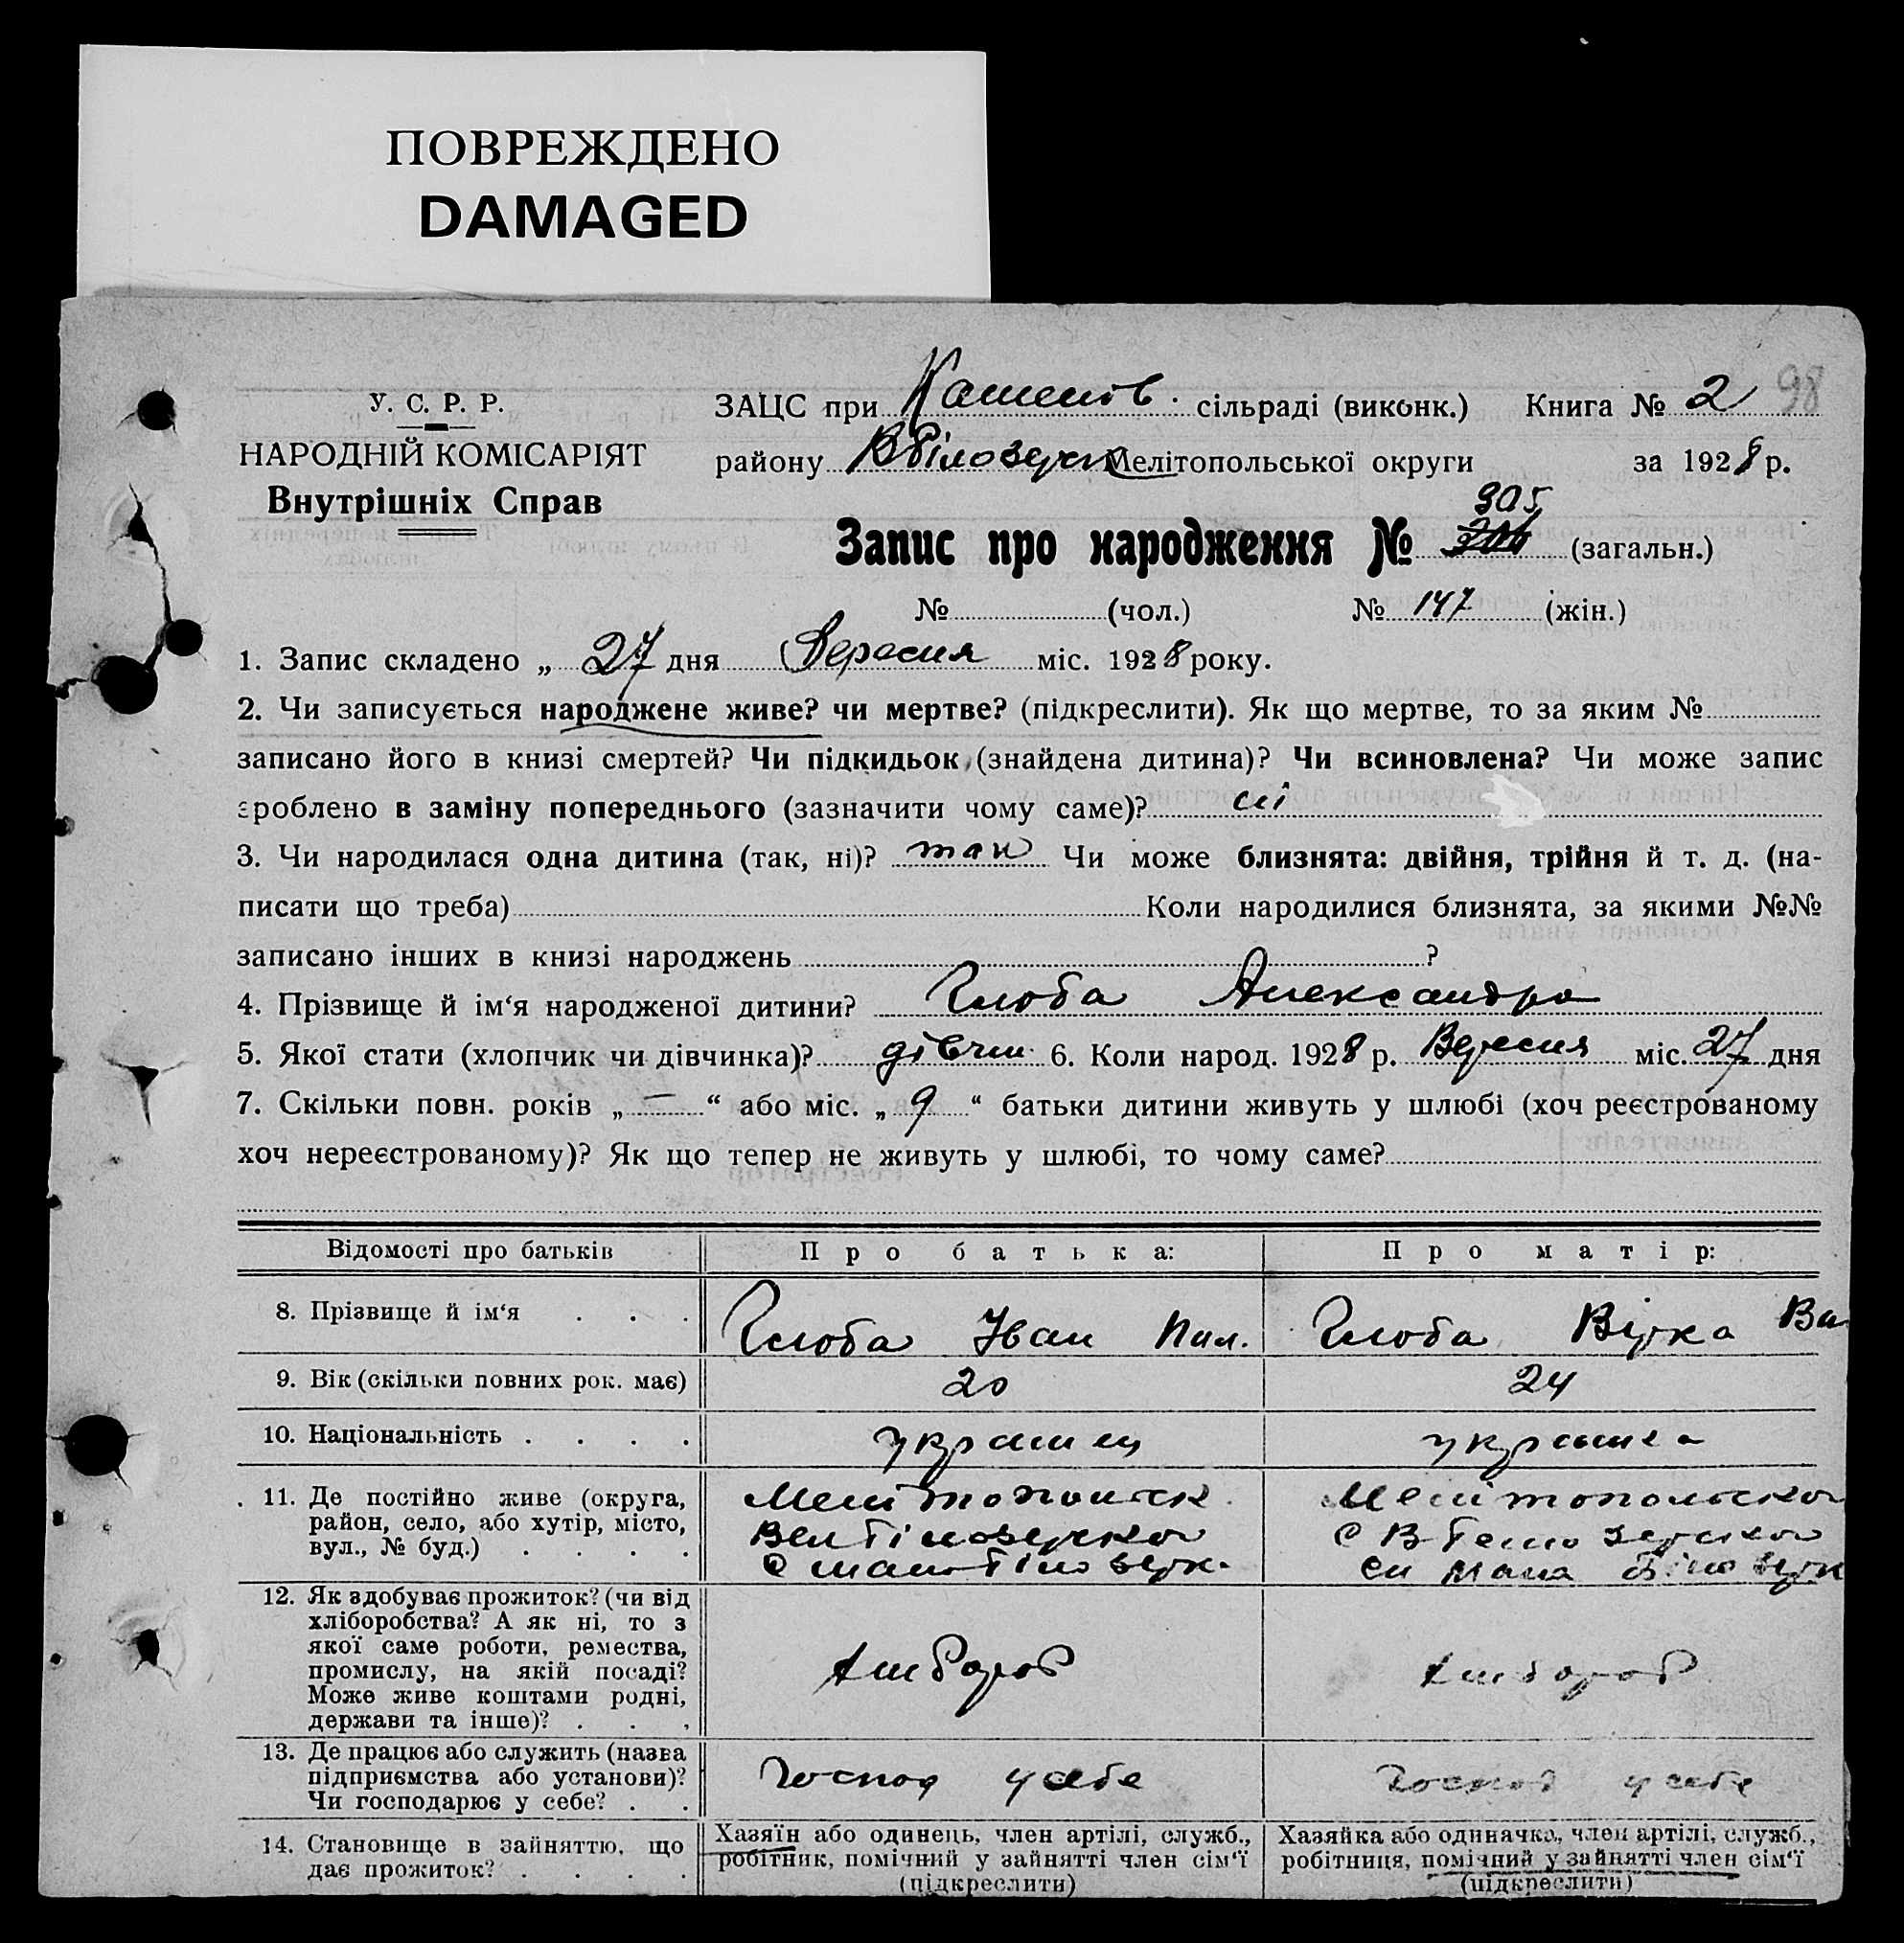 ПОВРЕЖДЕНО
DAMAGED
98
У. С. Р. Р.
НАРОДНІЙ КОМІСАРІЯТ
Внутрішніх Справ
ЗАЦС при сільраді (виконк.) Книга № 2
району В Білозерск Мелітопольської округи за 1928 р.
305
Запис про народження № (загальн.)
№ (чол.) № 147 (жін.)
1. Запис складено „ 27 дня Вересня міс. 1928 року.
2. Чи записується народжене живе? чи мертве? (підкреслити). Як що мертве, то за яким №
записано його в книзі смертей? Чи підкидьок (знайдена дитина)? Чи всиновлена? Чи може запис
зроблено в заміну попереднього (зазначити чому саме)? ні
3. Чи народилася одна дитина (так, ні)? так Чи може близнята: двійня, трійня й т. д. (на-
писати що треба) Коли народилися близнята, за якими №№
записано інших в книзі народжень ?
4. Прізвище й ім‘я народженої дитини? Глоба Александра
5. Якої стати (хлопчик чи дівчинка)? дівчин 6. Коли народ. 1928 р. Вересня міс. 27 дня
7. Скільки повн. років „ — “ або міс. „ 9 “ батьки дитини живуть у шлюбі (хоч реєстрованому
хоч нереєстрованому)? Як що тепер не живуть у шлюбі, то чому саме?
Відомості про батьків Про батька: Про матір:
8. Прізвище й ім‘я . . . Глоба Іван Пил. Глоба Вірка Ва
9. Вік (скільки повних рок. має) 20 24
10. Національність . . . . украинец украинка
11. Де постійно живе (округа,
район, село, або хутір, місто,
вул., № буд.) . . . .
Мелітопольск
Вел Білозерской
с мало Білозерк.
Мелітопольской
В Белозерской
Мала Білозерк
12. Як здобуває прожиток? (чи від
хліборобства? А як ні, то з
якої саме роботи, ремества,
промислу, на якій посаді?
Може живе коштами родні,
держави та інше)? . . .
хлібороб хлібороб
13. Де працює або служить (назва
підприємства або установи)?
Чи господарює у себе? . .
Господ у себе Господ у себе
14. Становище в зайняттю, що
дає прожиток? . . . .
Хазяїн або одинець, член артілі, служб.,
робітник, помічний у зайнятті член сім‘ї
(підкреслити)
Хазяйка або одиначка, член артілі, служб.,
робітниця, помічний у зайнятті член сім‘ї
(підкреслити)